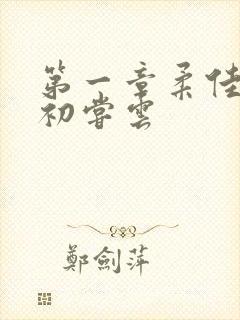 第一章柔佳
初嘗雲
鄭劍萍